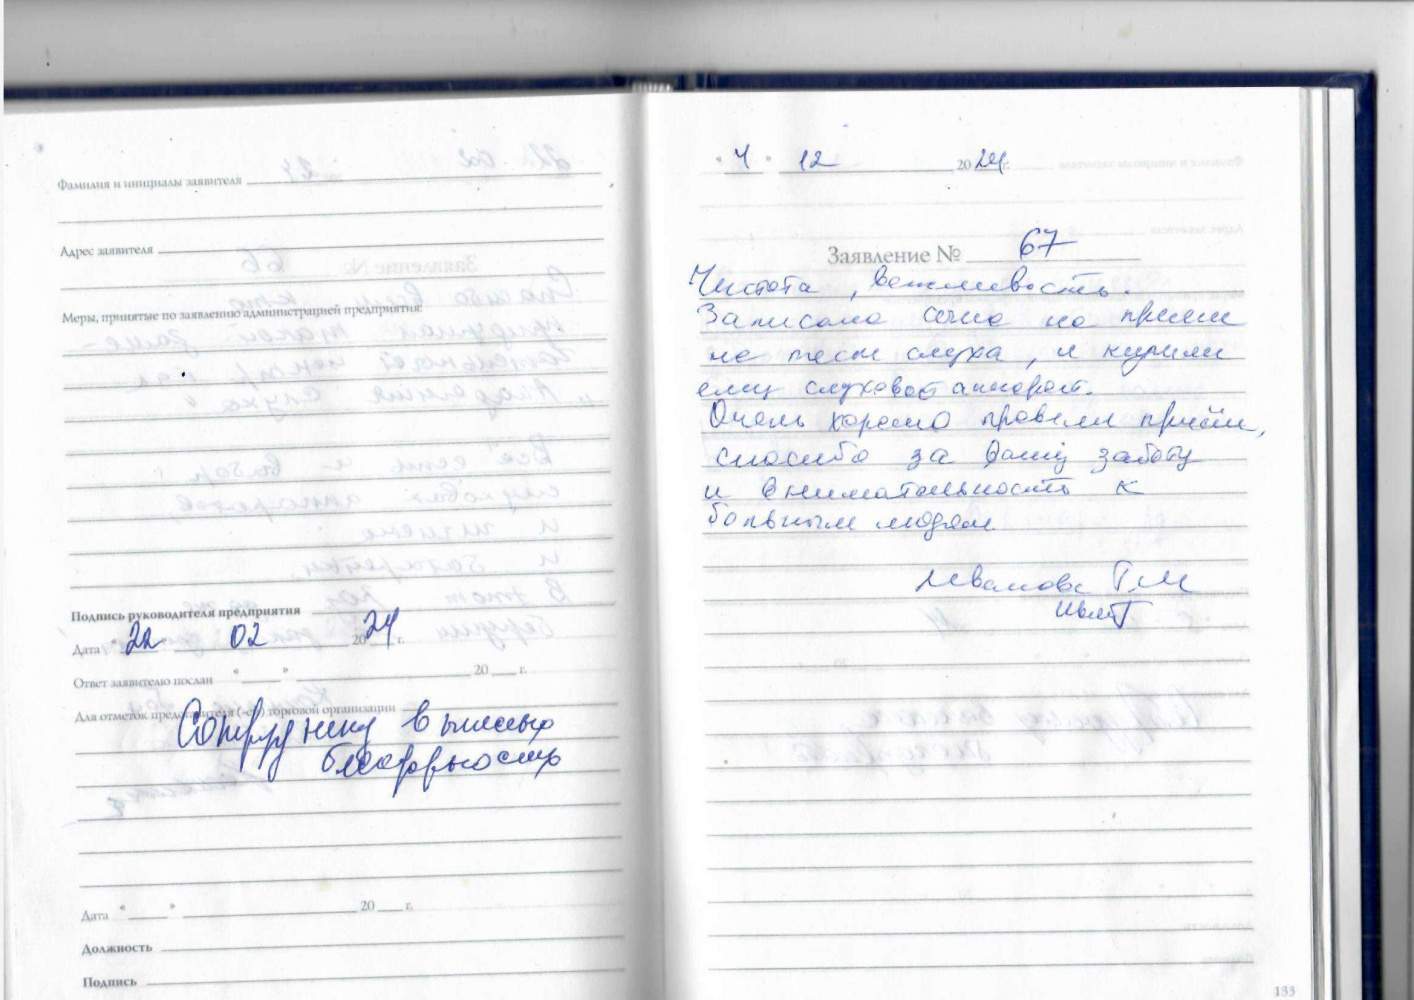 Фамилия и инициалы заявителя
Адрес заявителя
Меры, принятые по заявлению администрацией предприятия:
Подпись руководителя предприятия
Дата "22" 02 2024 г.
Ответ заявителю послан "___" ___ 20 ___ г.
Для отметок представителя (-ей) торговой организации
Сотруднику
Дата "___" ___ 20 ___ г.
Должность
Подпись
"4" 12 2024 г.
Заявление № 67
Чистота, вежливость.
Записала сына на прием
на тест слуха, и купили
ему слуховой аппарат.
Очень хорошо провели приём,
спасибо за Вашу заботу
и внимательность к
больным людям
Т.М
133